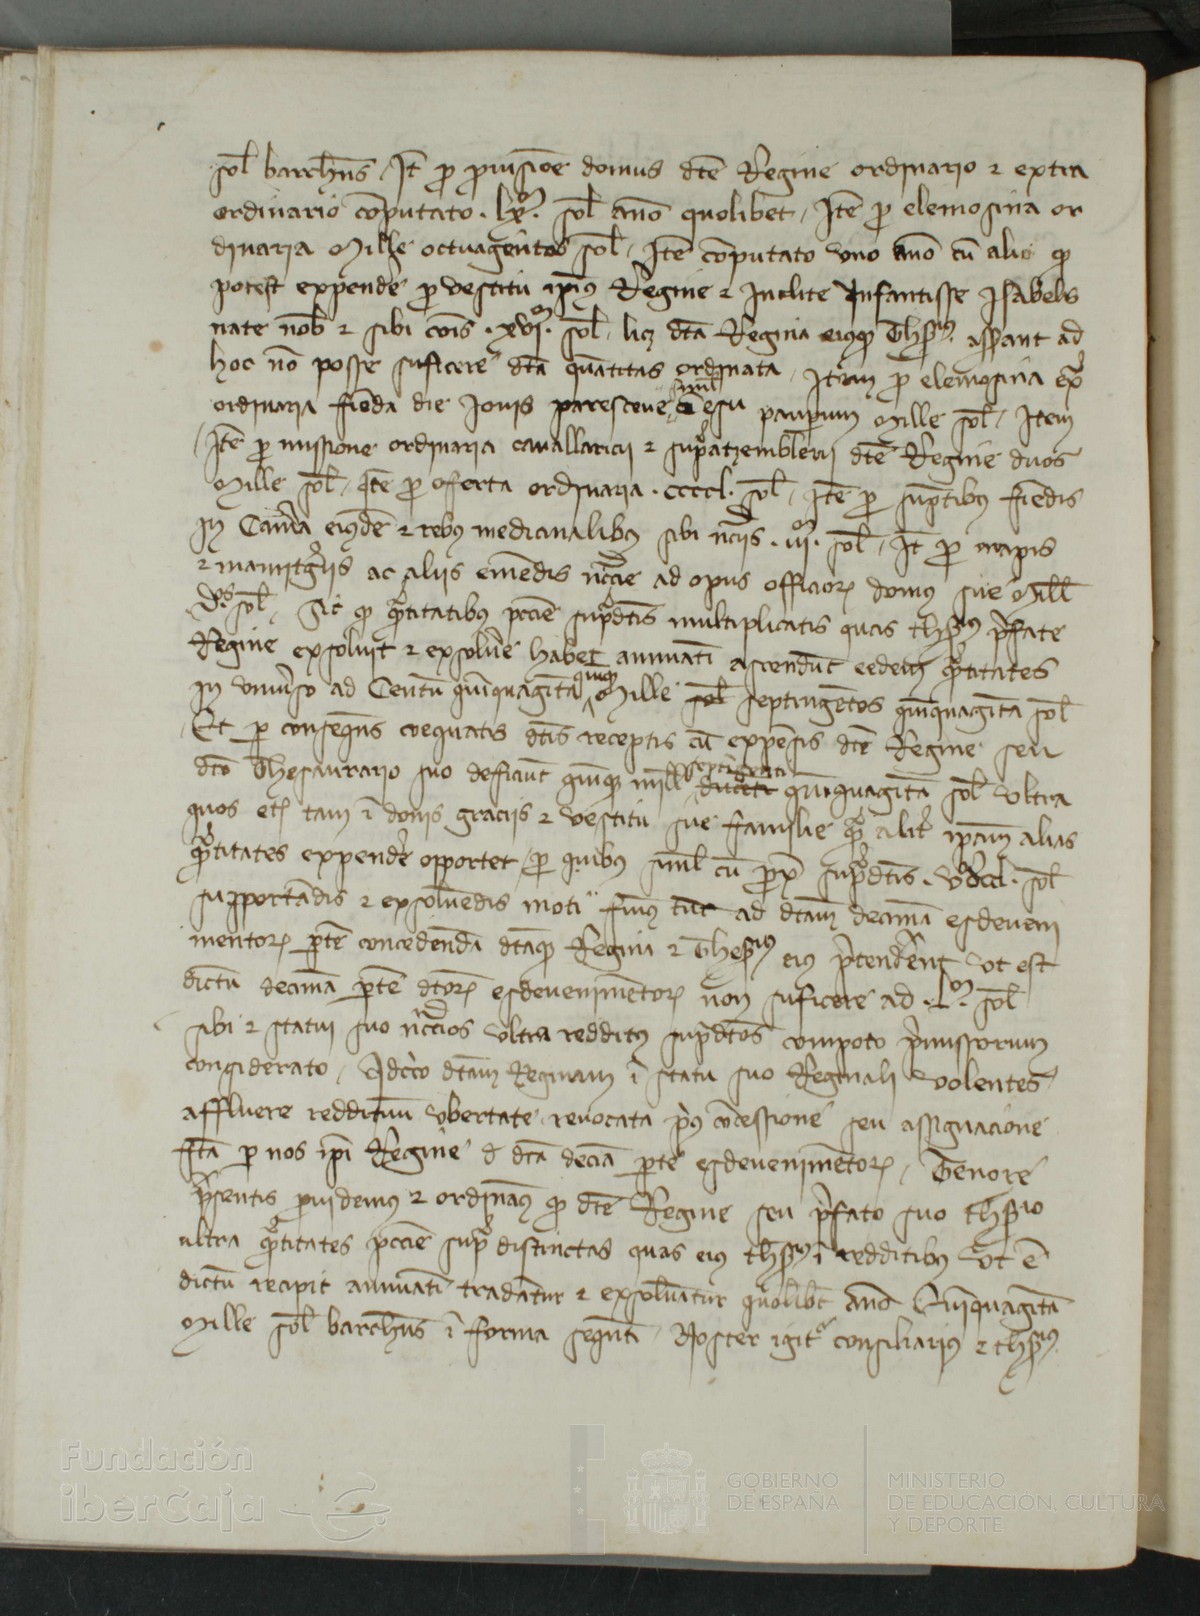 sol barchns, It p prouisioe domus dte Regine ordinario ⁊ extra
ordinario computato . lxᵐ. sol ano quolibet, Ite p elemosina or
dinaria Mille octuagentos sol, Ite computato vno ano cu alio q
potest expendere p vestitu ipius Regine ⁊ Inclite Infantisse Isabelis
nate nob ⁊ sibi cois . xvjᵐ. sol, licz dta Regina eiusq Thesrius asserant ad
hoc no posse suficere dta quantitas ordinata, Item p elemosina ext
ordinaria fienda die Jouis paresceue siml esu paupum Mille sol, Item
Ite p missione ordinaria cauallaricii ⁊ supatzemblerii dte Regine duos
Mille sol, Ite p oferta ordinaria . ccccl. sol, Ite p suptibus fiendis
In Camera eiusde ⁊ rebus medicinalibus sibi nccis . iijᵐ. sol, It p mapis
⁊ manutgiis ac aliis emendis nccie ad opus officior domus sue Mill
dᵒˢ. sol, Sic q qtitatibus pccie supdtis multiplicatis quas thesrius pfate
Regine exsoluit ⁊ exsoluere habet annuati ascendut eedem qtitates
In vniuso ad Centu quiquaginta quiq Mille sol septingentos quiquaginta sol
Et p consequens coequatis dtis receptis cu expensis dte Regine seu
dto Thesaurario suo deficiut quiq mill septigenti ducenti quiquaginta sol vltra
quos eti tam i donis graciis ⁊ vestitu sue familie q alit ipam alias
qtitates expendere opportet, p quibus siml cu pox supdtis . vᵐdccl. sol
supportadis ⁊ exsoluendis moti fuimus tuc ad dtam decima esdeueni
mentor pte concedenda dtaq Regina ⁊ Thesrius eius ptenderent vt est
dictu decima pte dtor esdeuenimentor non suficere ad . Lᵐ. sol
sibi ⁊ statui suo nccios vltra redditus supdtos compoto pmissorum
considerato, Idcirco dtam Reginam i statu suo Reginali volentes
affluere reddituu vbertate reuocata pus concessione seu assignacione
fta p nos ipi Regine d dta decia pte esdeuenimentor, Tenore
psentis puidemus ⁊ ordinamus q dte Regine seu pfato suo thesrio
ultra qtitates pccie sup distinctas quas eius thesrius i redditibus vt e
dictu recipit annuati tradantur ⁊ exsoluantur quolibet anno Quiquaginta
Mille sol barchns i forma sequenti, Noster igitr consiliarius ⁊ thesrius
Fundación
iberCaja
GOBIERNO
DE ESPAÑA
MINISTERIO
DE EDUCACIÓN, CULTURA
Y DEPORTE